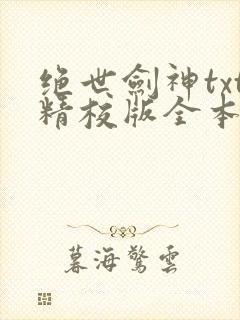 绝世劍神txt
精校版全本
暮海驚雲